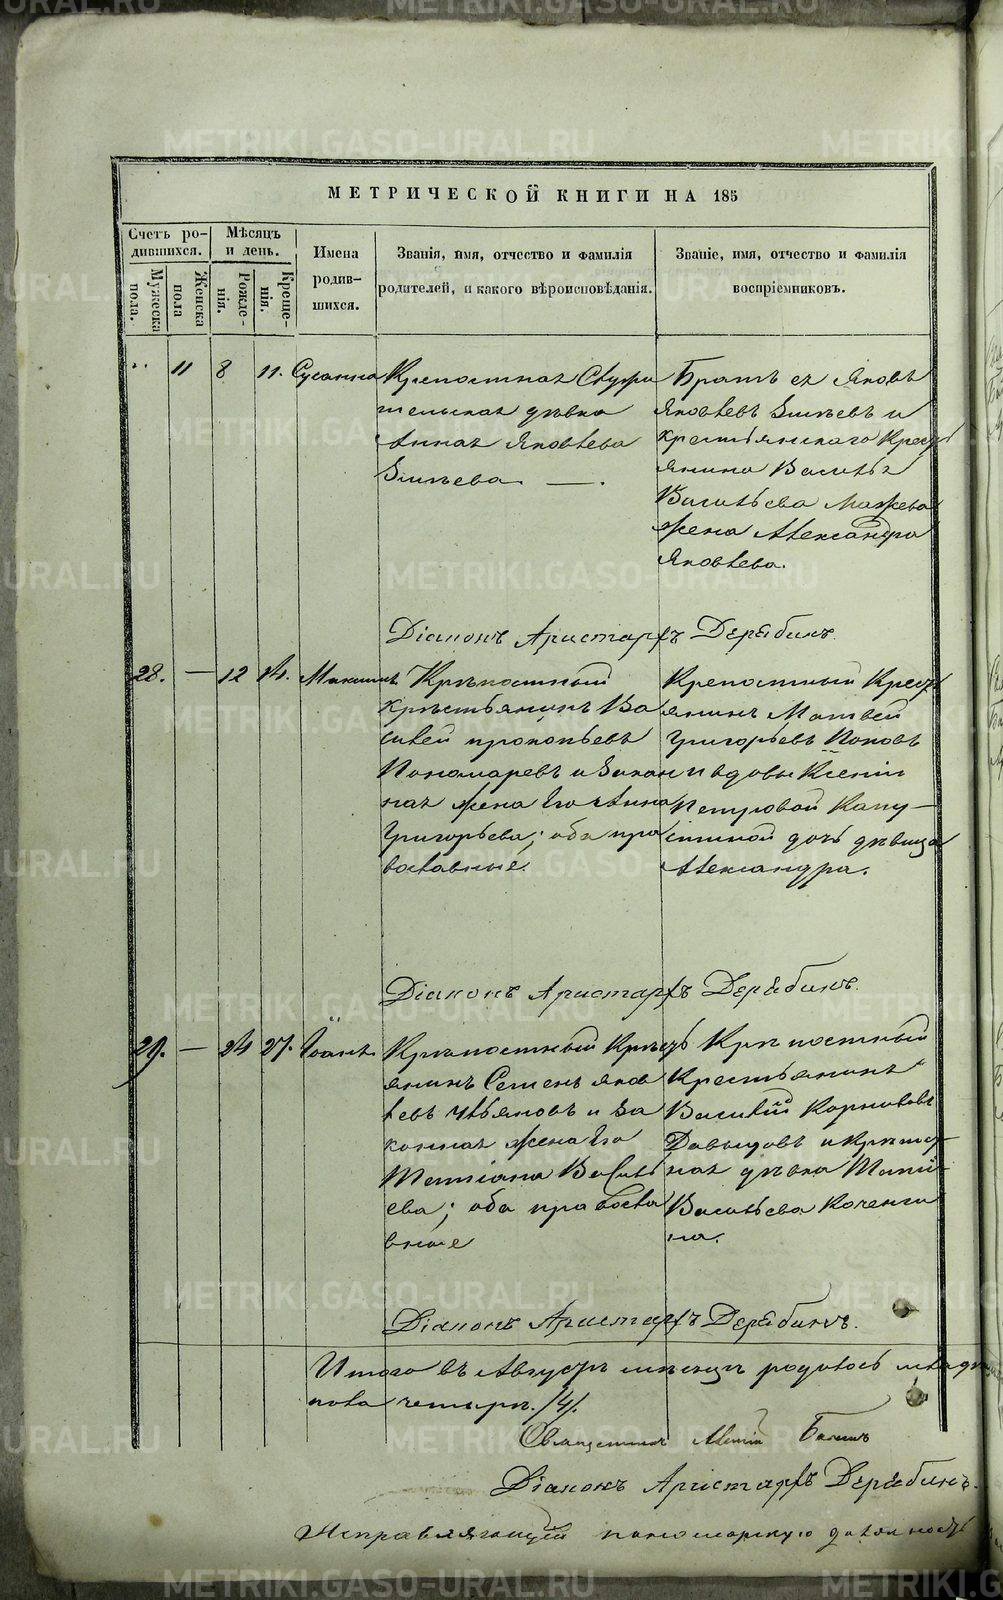 МЕТРИЧЕСКОЙ КНИГИ НА 185
Счетъ ро-
дившихся.
Мужеска
пола.
Женска
пола
Мѣсяцъ
и день.
Рожде-
нія.
Креще-
нія.
Имена
родив-
шихся.
Званія, имя, отчество и фамилія
родителей, и какого вѣроисповѣданія.
Званіе, имя, отчество и фамилія
воспріемниковъ.
" 11 8 11. Сусанна
Крепостная
тельская дѣвка
Анна Яковлева
Братъ ея Яковъ
Яковлевъ и
крестьянскаго
янина Василья
Васильева
жена Александра
Яковлева.
Діаконъ Аристархъ Дерябинъ.
28. — 12 14. Максимъ
Крѣпостный
крѣстьянинъ Ва
силей прокопьевъ
Пономаревъ и закон
ная жена Его Анна
Григорьева; оба пра
вославные.
Крепостный Крест
янинъ Матвей
Григорьевъ Поповъ
и вдовы Ксеніи
Петровой Капу-
стиной дочь дѣвица
Александра.
Діаконъ Аристархъ Дерябинъ.
29. — 24 27. Іоаннъ
Крѣпостный Крѣст
янинъ Семенъ яков
левъ Ульяновъ и за
конная жена Его
Татіана Василь
ева; оба правосла
вные
Крѣпостный
Крестьянинъ
Василій Корниловъ
Давыдовъ и Крѣпост-
ная дѣвка
Васильева Коченги
на.
Діаконъ Аристархъ Дерябинъ.
Итого въ Августѣ мѣсяцѣ родилось
пола четыре. /4/.
Священникъ
Діаконъ Аристархъ Дерябинъ.
Исправляющій пономарскую должность
METRIKI.GASO-URAL.RU